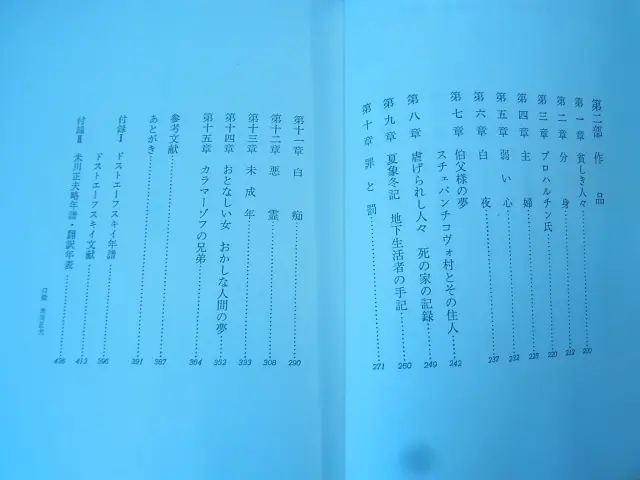 第二部 作品
第一章 貧しき人々 200
第二章 分身 212
第三章 プロハルチン氏 220
第四章 主婦 225
第五章 弱い心 232
第六章 白夜 237
第七章 伯父様の夢
スチェパンチコヴォ村とその住人 242
第八章 虐げられし人々 死の家の記録 249
第九章 夏象冬記 地下生活者の手記 260
第十章 罪と罰 271
第十一章 白痴 290
第十二章 悪霊 308
第十三章 未成年 333
第十四章 おとなしい女 おかしな人間の夢 352
第十五章 カラマーゾフの兄弟 364
参考文献 387
あとがき 391
付録Ⅰ ドストエーフスキイ年譜 396
ドストエーフスキイ文献 412
付録Ⅱ 米川正夫略年譜・翻訳年表 436
口絵 米川正夫